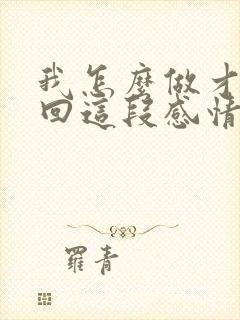 我怎麼做才
回這段感情
羅青